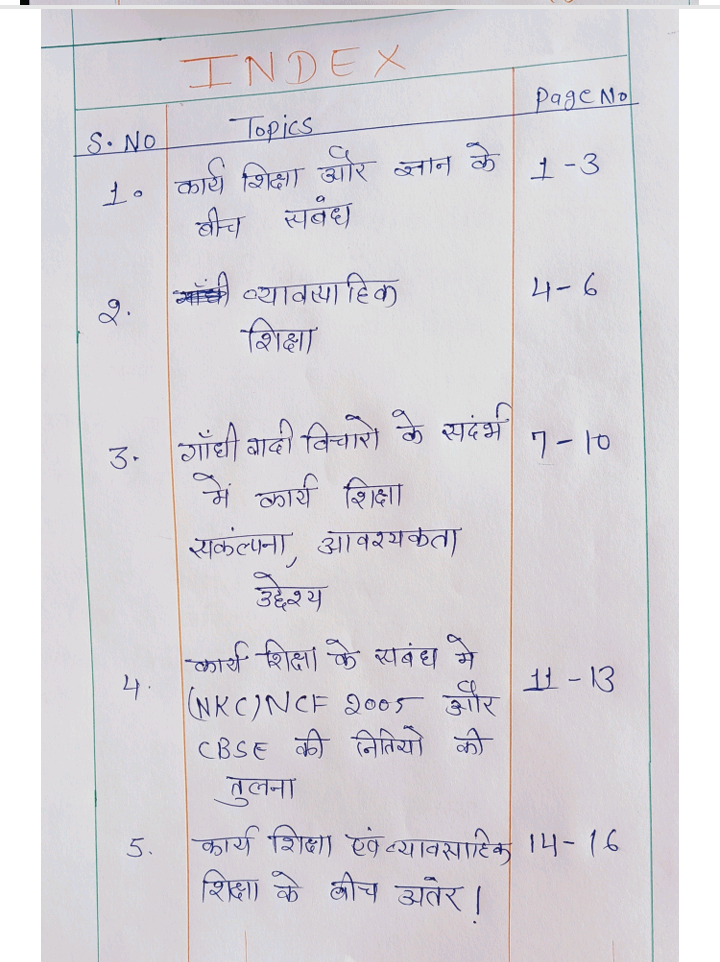 INDEX
S. NO Topics Page No
1. कार्य शिक्षा और ज्ञान के 1-3
बीच सबंध
2. व्यावसाहिक 4-6
शिक्षा
3. गाँधी वादी विचारो के सदंर्भ 7-10
में कार्य शिक्षा
सकंल्पना, आवश्यकता
उद्देश्य
4. कार्य शिक्षा के सबंध मे 11-13
(NKC)NCF 2005 और
CBSE की नितियो की
तुलना
5. कार्य शिक्षा एवं व्यावसाहिक 14-16
शिक्षा के बीच अतंर।